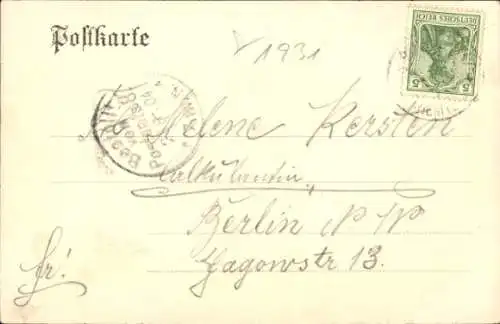 Postkarte
1931
DEUTSCHES REICH
5 5
Helene Kersten
Calkulantin
Berlin N W
Jagowstr 13.
Fr!